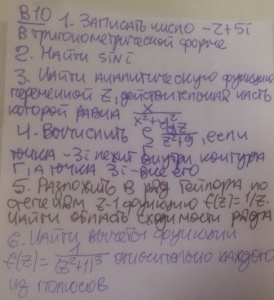 В10 1. Записать число -2+5i
в тригонометрической форме
2. Найти sin i
3. Найти аналитическую функцию
переменной z, действительная часть
которой равна x/(x²+y²)
4. Вычислить ∫ dz/(z²+9), если
точка -3i лежит внутри контура
Г, а точка 3i - вне его
5. Разложить в ряд Тейлора по
степеням z-1 функцию f(z)=1/z.
Найти область сходимости ряда
6. Найти вычеты функции
f(z)= 1/(z²+1)³ относительно каждого
из полюсов